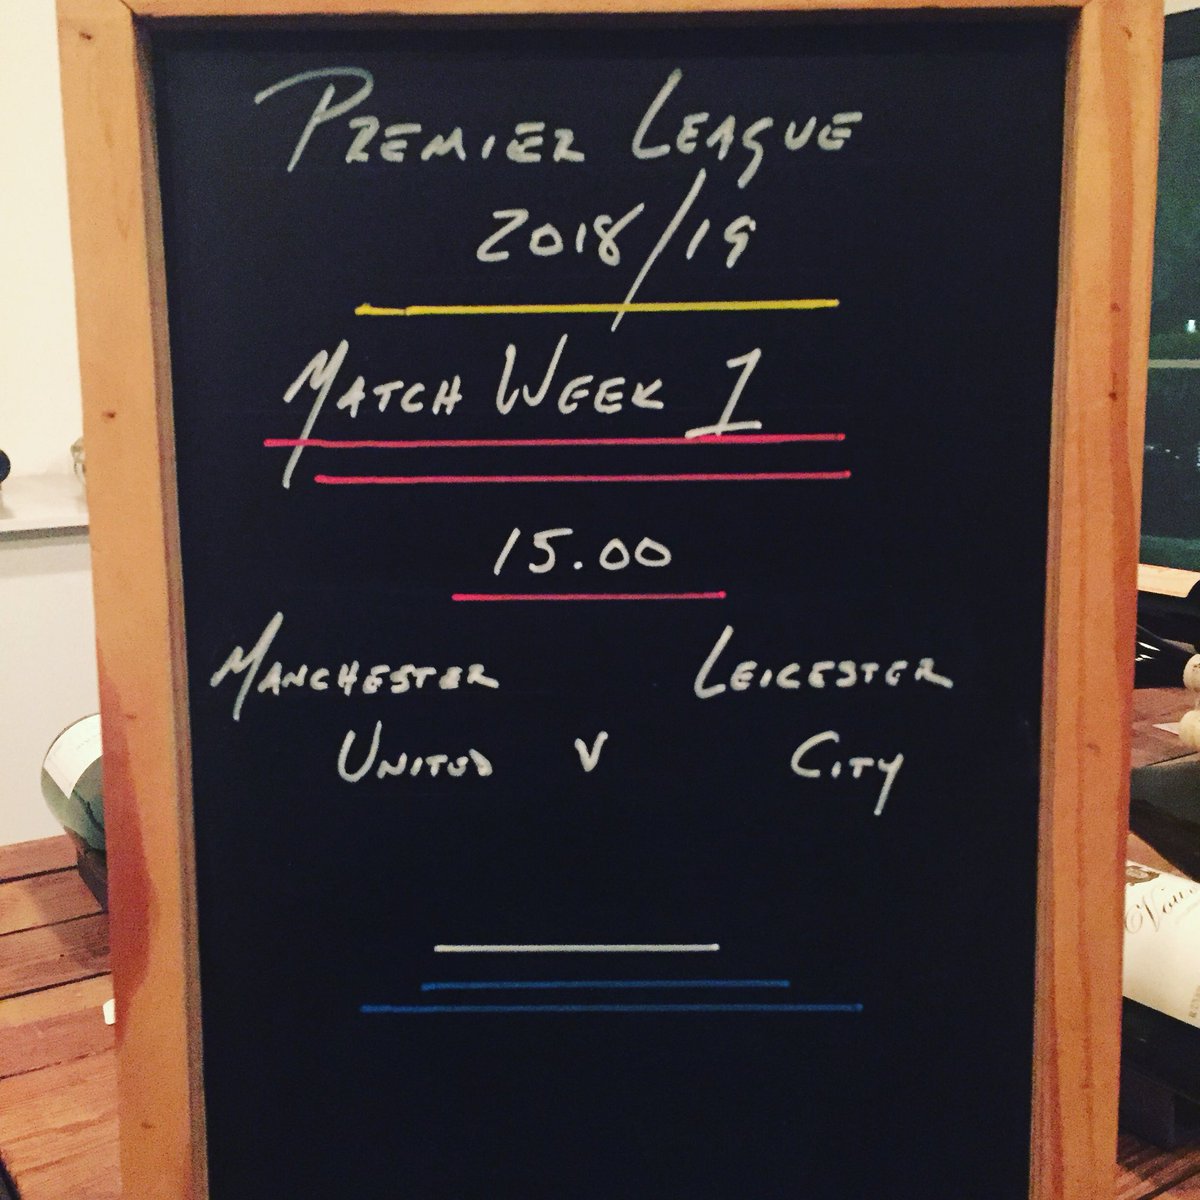 PREMIER LEAGUE
2018/19
MATCH WEEK 1
15.00
MANCHESTER LEICESTER
UNITED V CITY